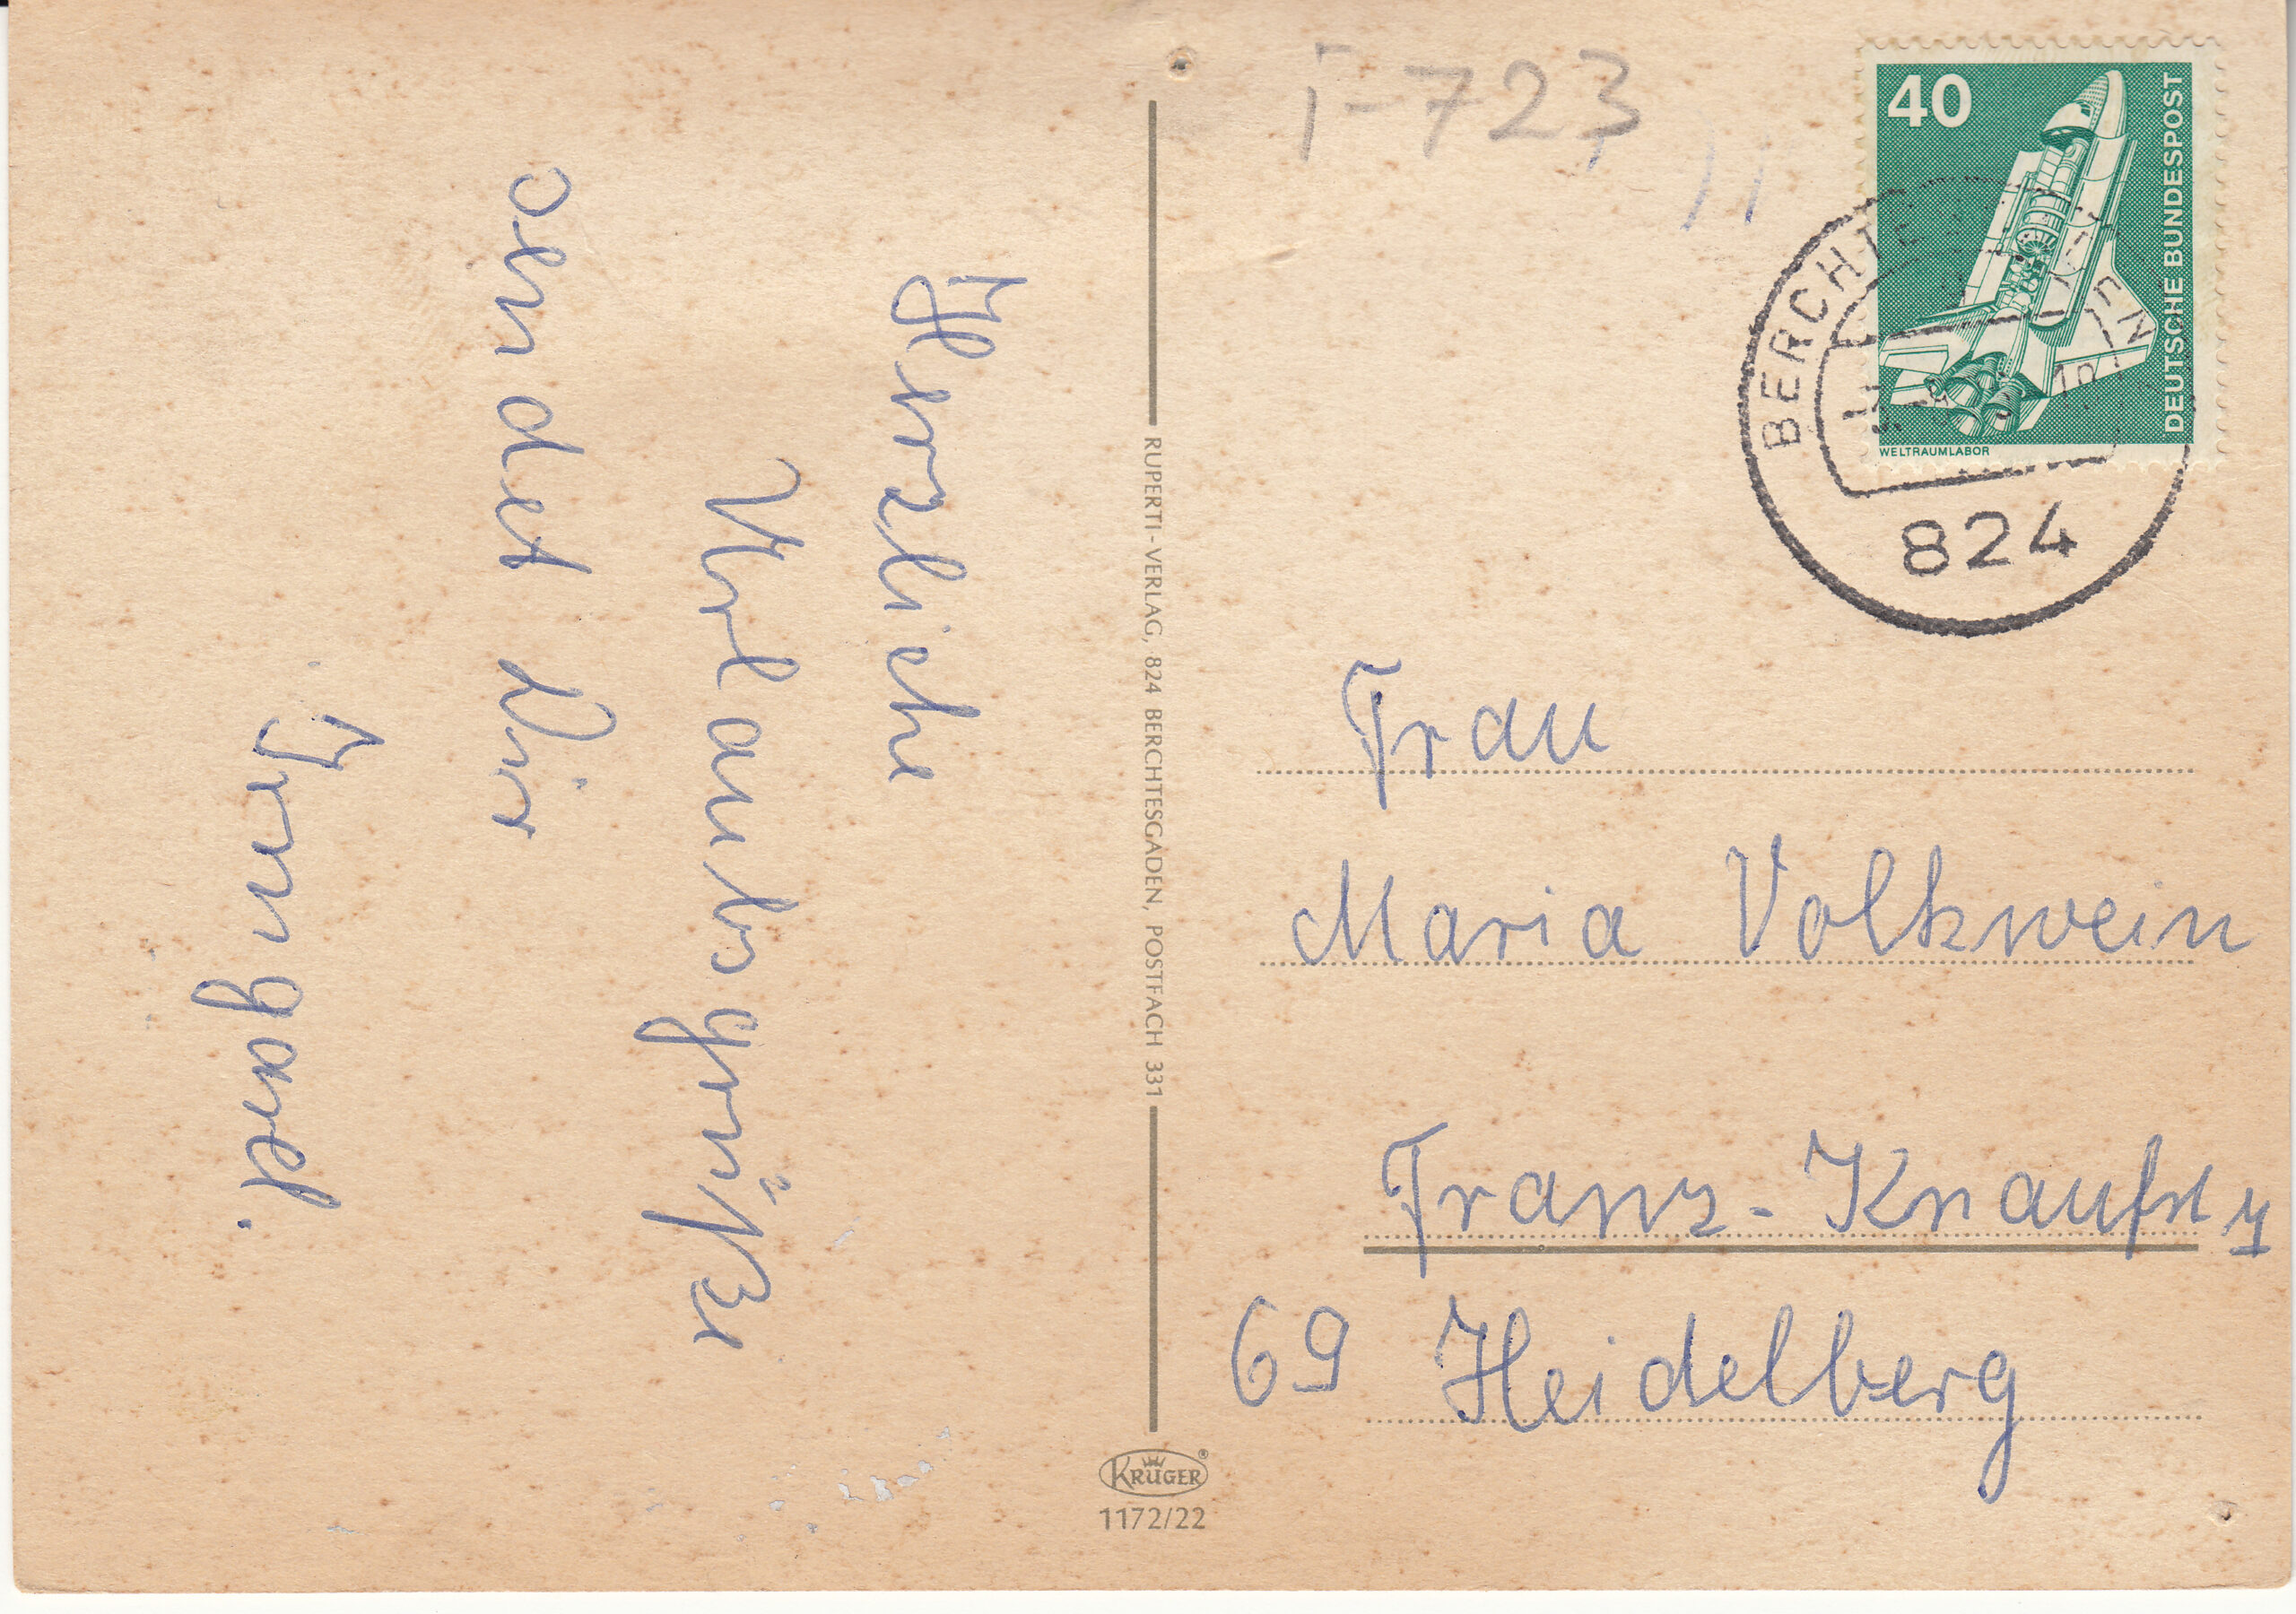 Herzliche
Urlaubsgrüße
sendet Dir
Irmgard.
RUPERTI-VERLAG, 824 BERCHTESGADEN, POSTFACH 331
KRÜGER®
1172/22
I-723
40
DEUTSCHE BUNDESPOST
WELTRAUMLABOR
824
Frau
Maria Volkwein
Franz-Knaufstr
69 Heidelberg